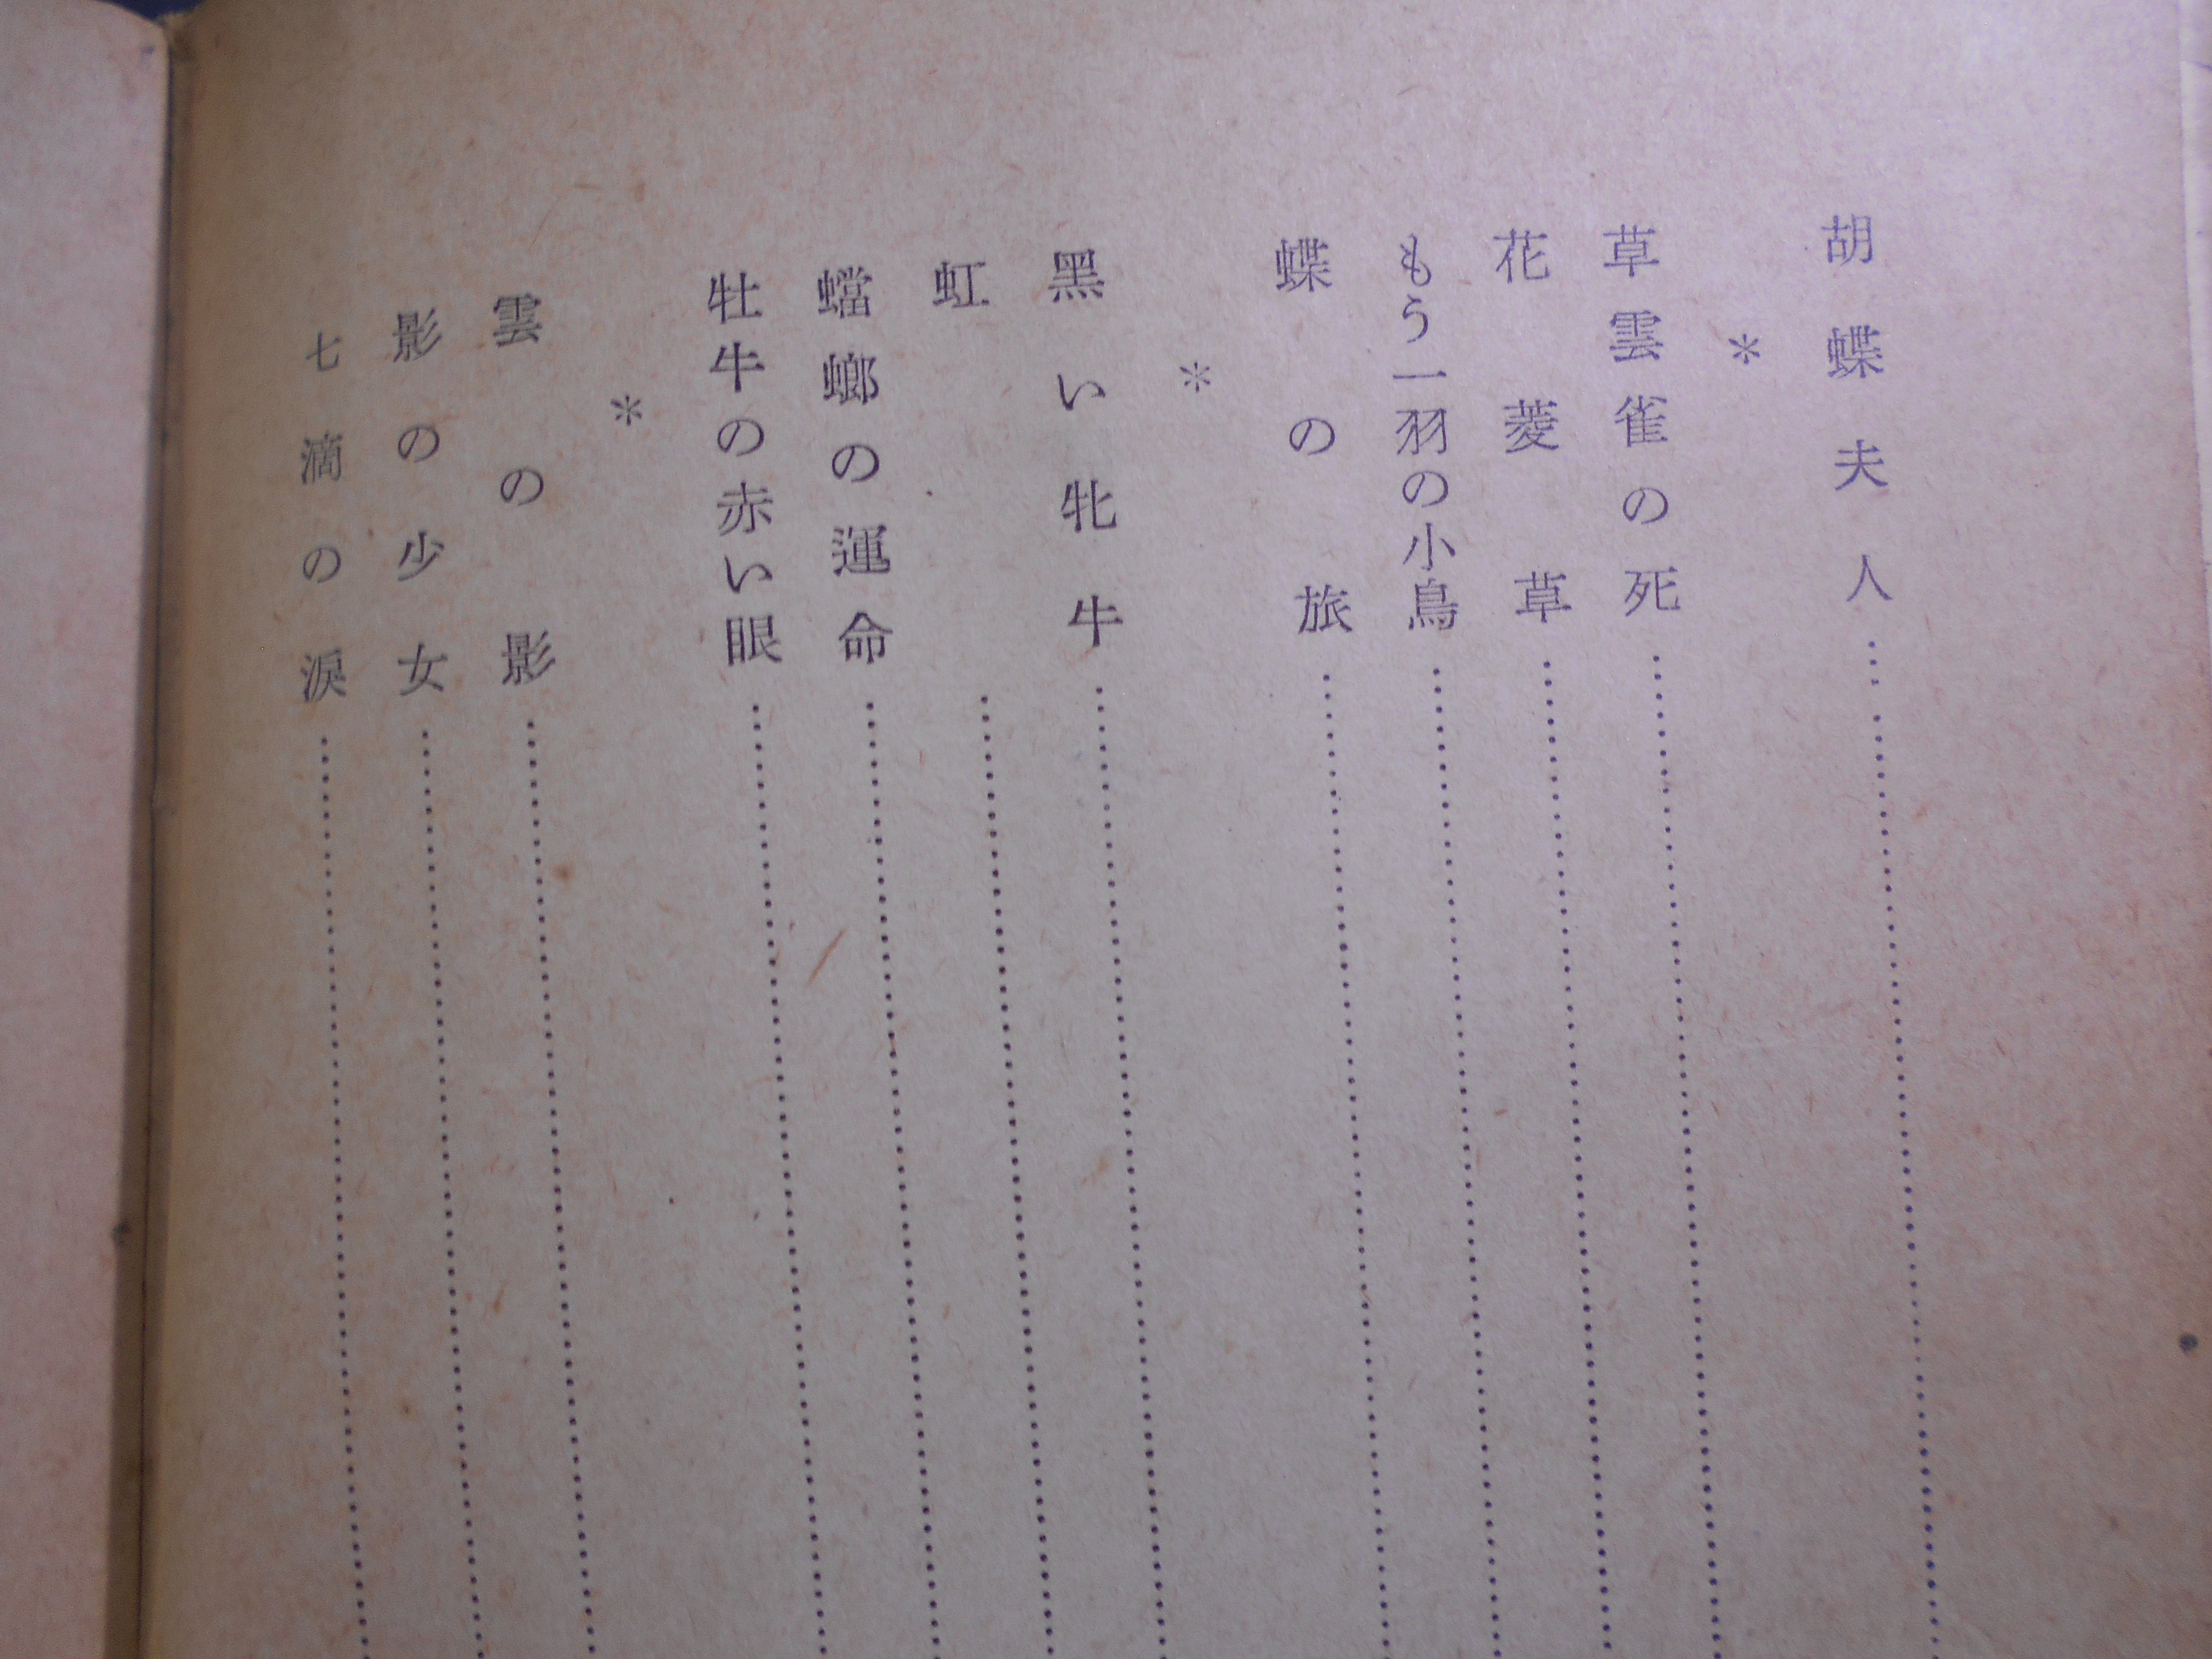 胡蝶夫人
＊
草雲雀の死
花菱草
もう一羽の小鳥
蝶の旅
＊
黑い牝牛
虹
蟷螂の運命
牡牛の赤い眼
＊
雲の影
影の少女
七滴の涙